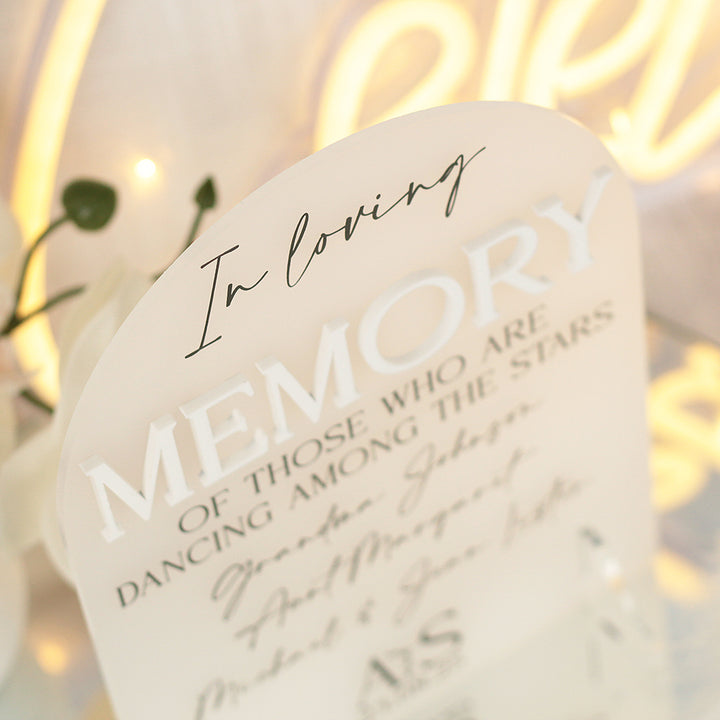 In loving
MEMORY
OF THOSE WHO ARE
DANCING AMONG THE STARS
Grandma Johnson
Aunt Margaret
Michael & June
A S